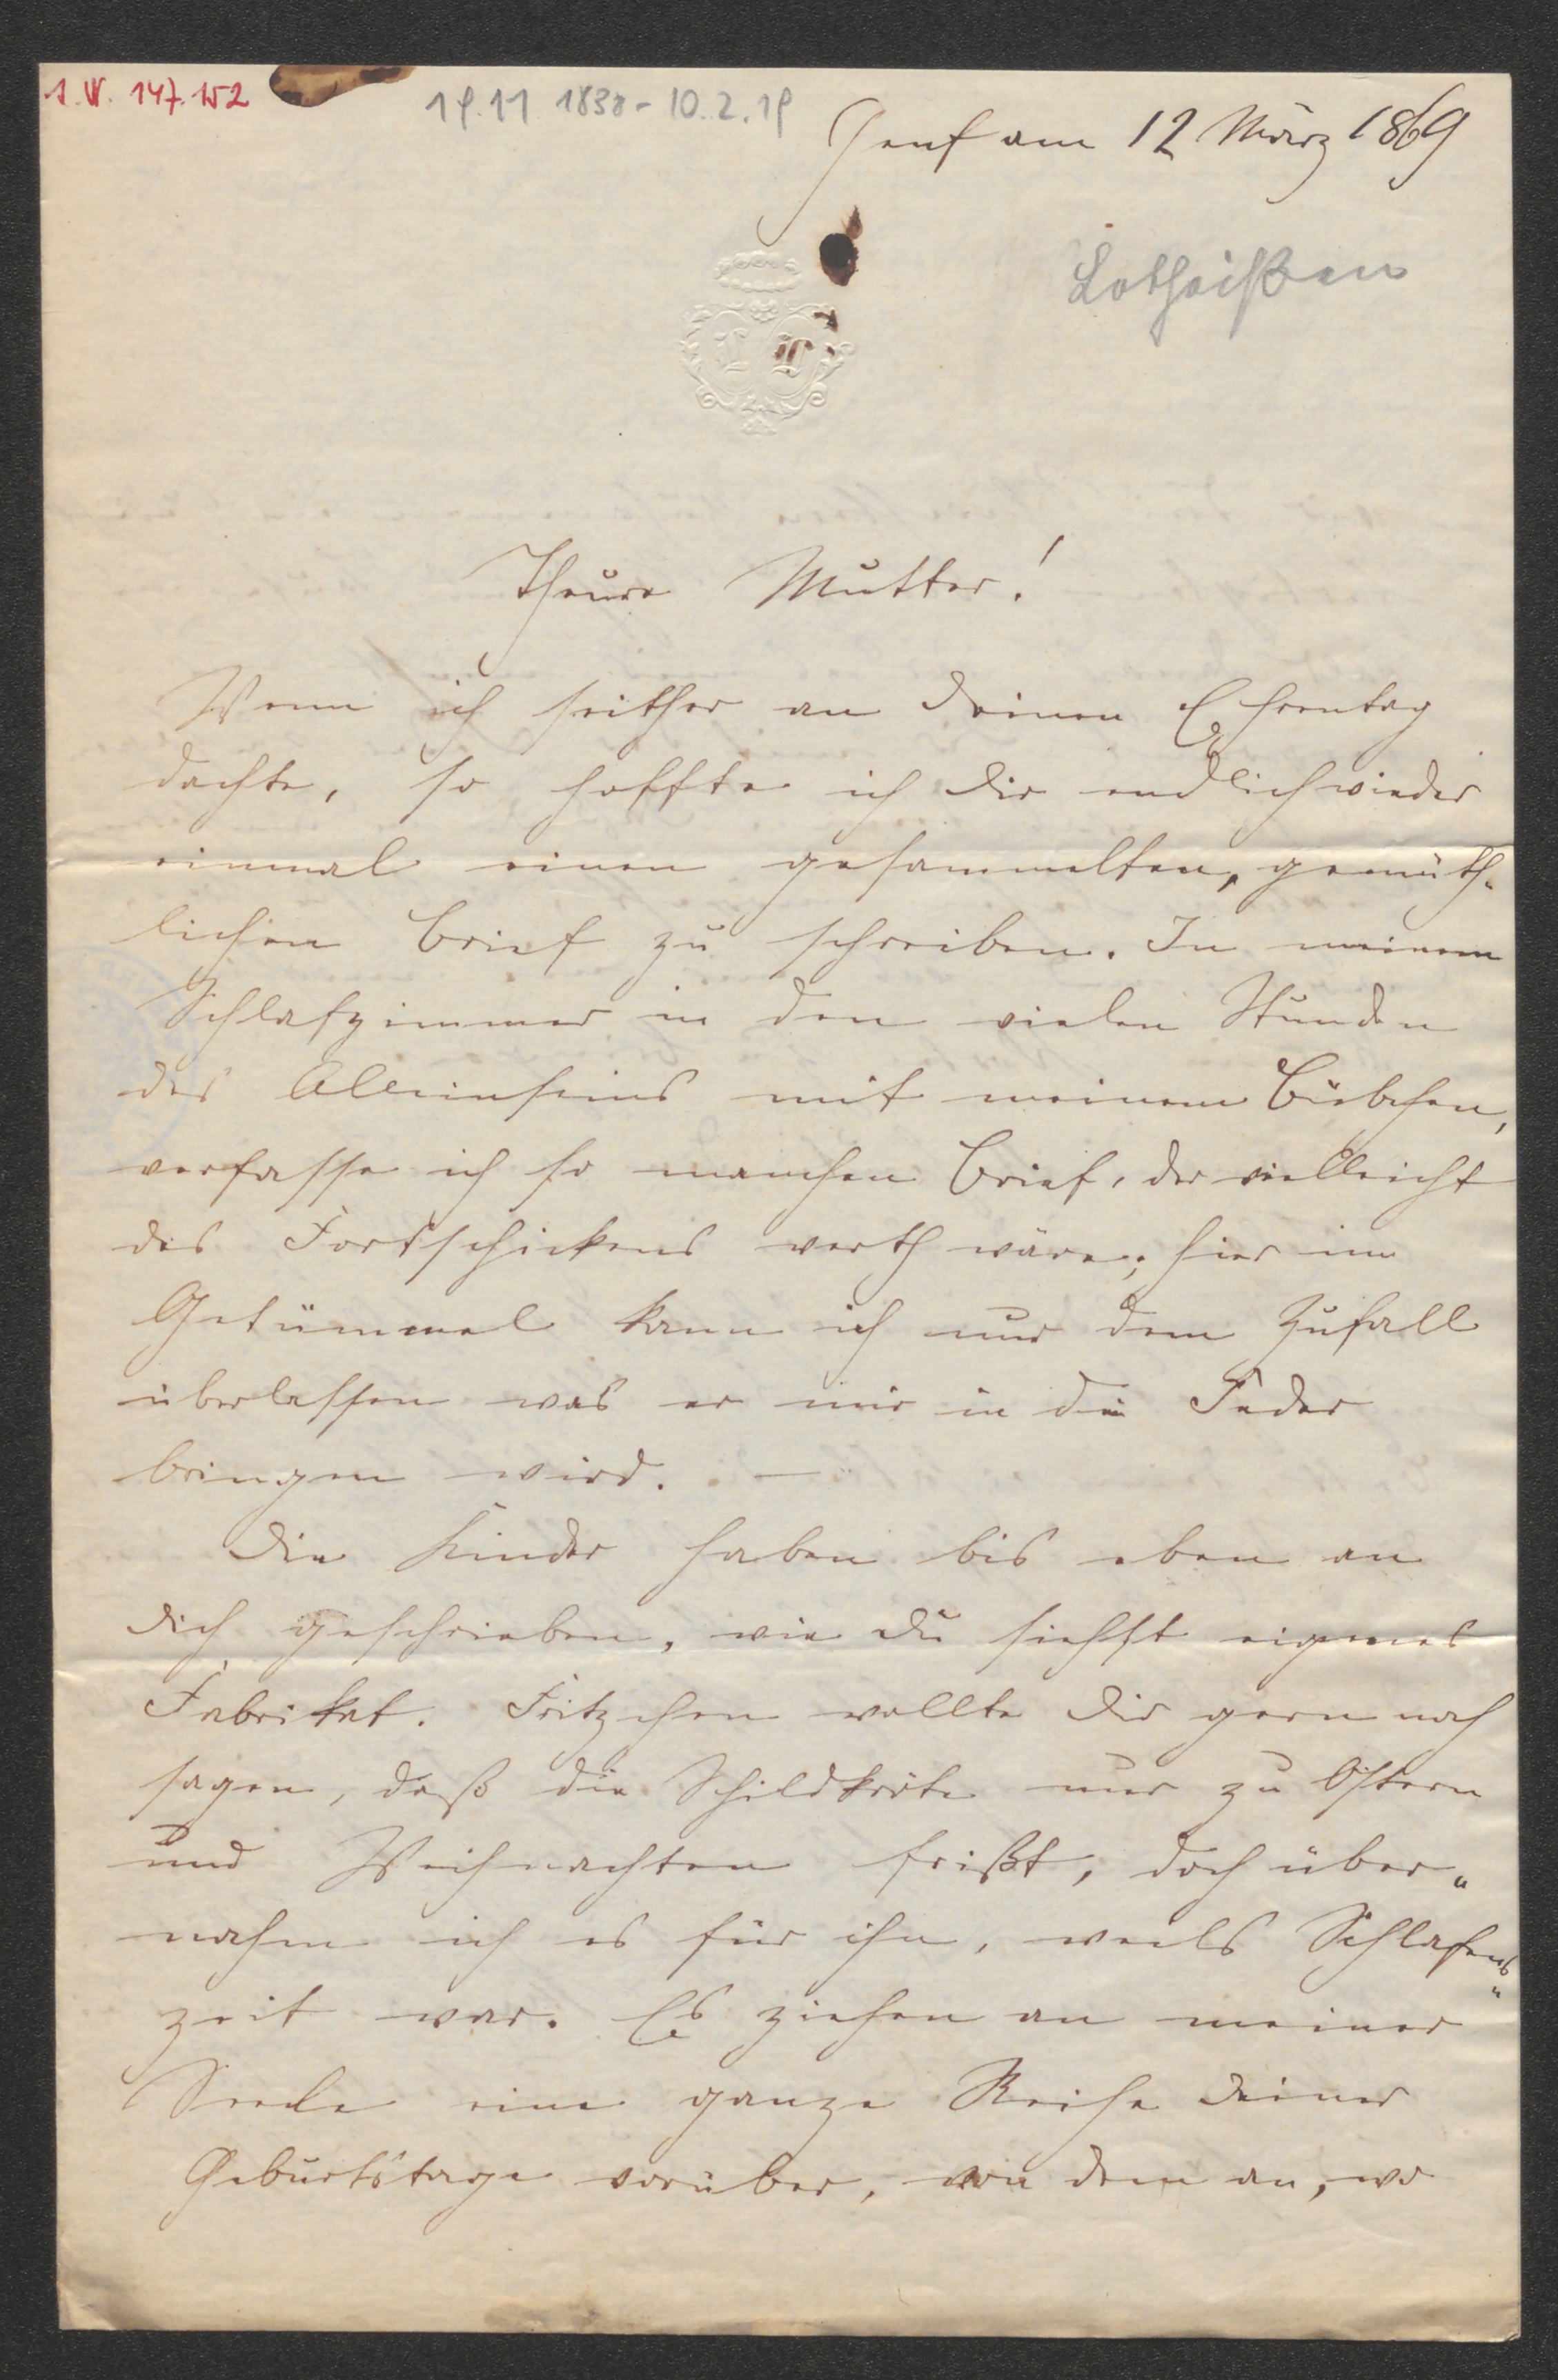 I.N. 147.152
19.11 1838 - 10.2.19
Genf am 12 März 1869
Lotheißen
L L
Theure Mutter!
Wenn ich seither an Deinen Ehrentag
dachte, so hoffte ich Dir endlich wieder
einmal einen gesammelten, gemüth-
lichen Brief zu schreiben. In meinem
Schlafzimmer in den vielen Stunden
des Alleinseins mit meinem Bübchen,
verfasse ich so manchen Brief, der vielleicht
des Fortschickens werth wäre; hier im
Getümmel kann ich nur dem Zufall
überlassen was er mir in die Feder
bringen wird. —
Die Kinder haben bis eben an
Dich geschrieben, wie Du siehst eigenes
Fabrikat. Fritzchen wollte Dir gern noch
sagen, daß die Schildkröte nur zu Ostern
und Weihnachten frißt, doch über-
nahm ich es für ihn, weils Schlafens-
zeit war. Es ziehen an meiner
Seele eine ganze Reihe Deiner
Geburtstage vorüber, von dem an, wo